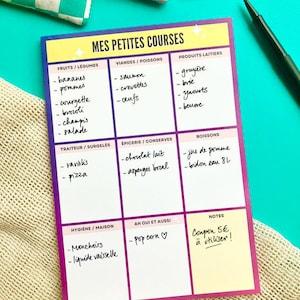 MES PETITES COURSES
FRUITS / LÉGUMES
- bananes
- pommes
- courgette
- brocoli
- champis
- salade
VIANDES / POISSONS
- saumon
- crevettes
- œufs
PRODUITS LAITIERS
- gruyère
- brie
- yaourts
- beurre
TRAITEUR / SURGELÉS
- raviolis
- pizza
ÉPICERIE / CONSERVES
- chocolat lait
- asperges bocal
BOISSONS
- jus de pomme
- bidon eau 8L
HYGIÈNE / MAISON
- mouchoirs
- liquide vaisselle
AH OUI ET AUSSI
- pop corn ♡
NOTES
Coupon 5€
à utiliser !